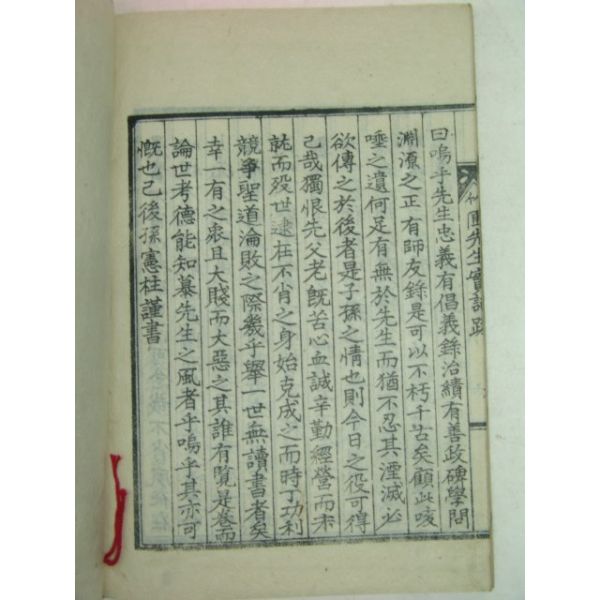 先生實記跋
曰嗚乎先生忠義有倡義錄治績有善政碑學問
淵源之正有師友錄是可以不朽千古矣顧此咳
唾之遺何足有無於先生而猶不忍其湮滅必
欲傳之於後者是子孫之情也則今日之役可得
已哉獨恨先父老旣苦心血誠辛勤經營而未
就而歿世逮在不肖之身始克成之而時丁功利
競爭聖道淪敗之際幾乎擧一世無讀書者矣
幸一有之衆且大賤而大惡之其誰有覽是卷而
論世考德能知慕先生之風者乎嗚乎其亦可
慨也已後孫憲柱謹書